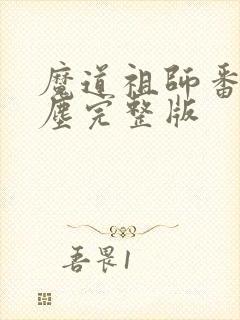 魔道祖師番
塵完整版
吾畏1